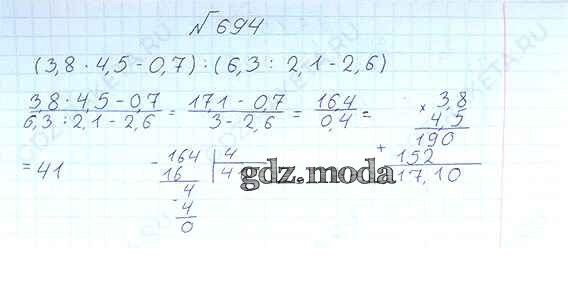 №694
(3,8 · 4,5 - 0,7) : (6,3 : 2,1 - 2,6)
3,8 · 4,5 - 0,7 / 6,3 : 2,1 - 2,6 = 17,1 - 0,7 / 3 - 2,6 = 16,4 / 0,4 =
= 41
× 3,8
4,5
190
+ 152
17,10
- 164 | 4
16
4
- 4
0
gdz.moda